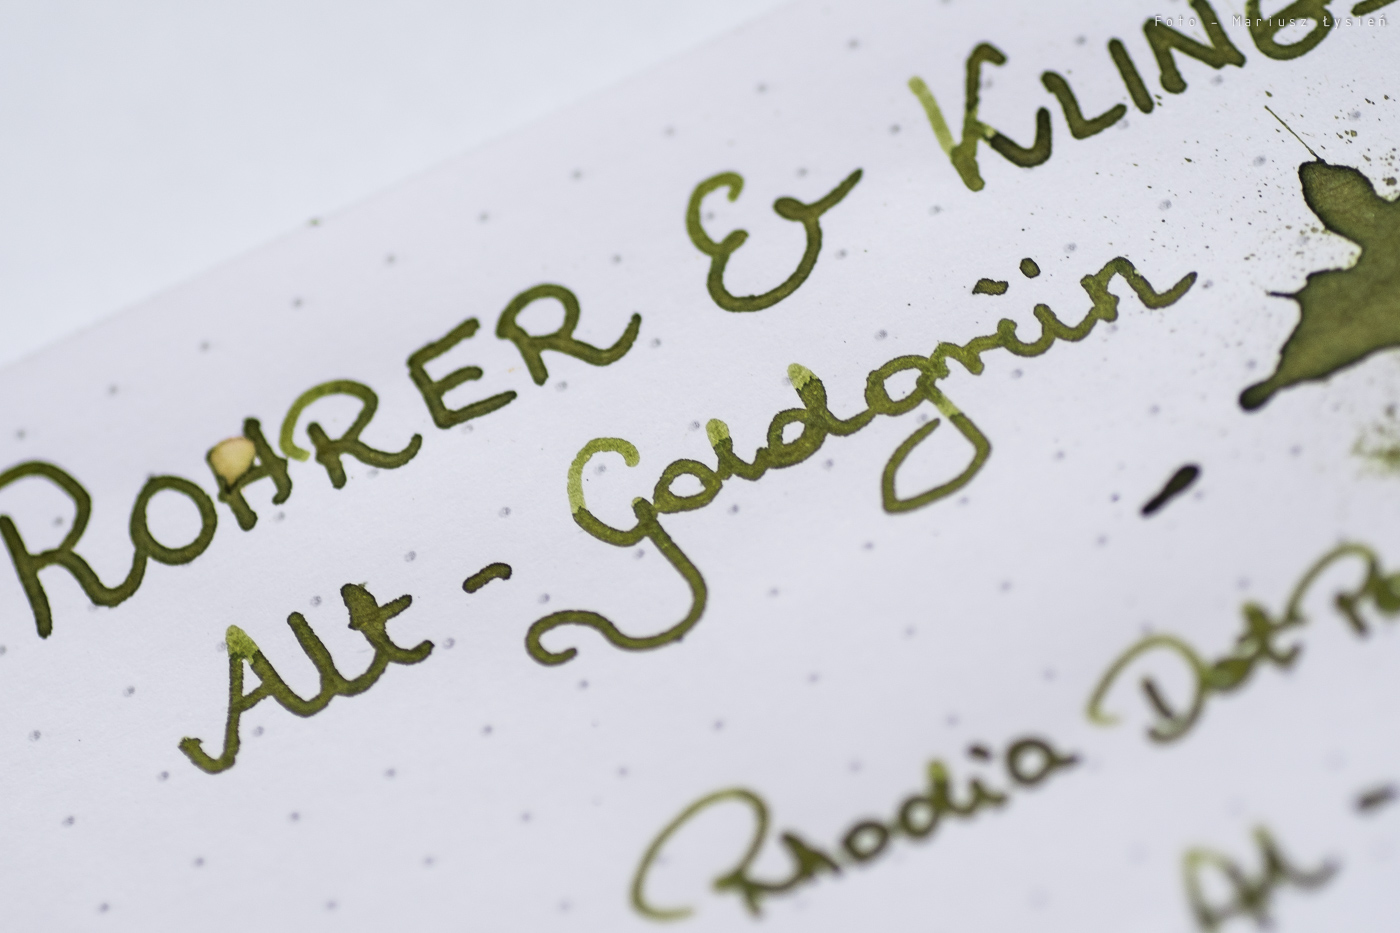 Foto - Mariusz Łysień
ROHRER & KLING-
Alt - Goldgrün
Rhodia Dot